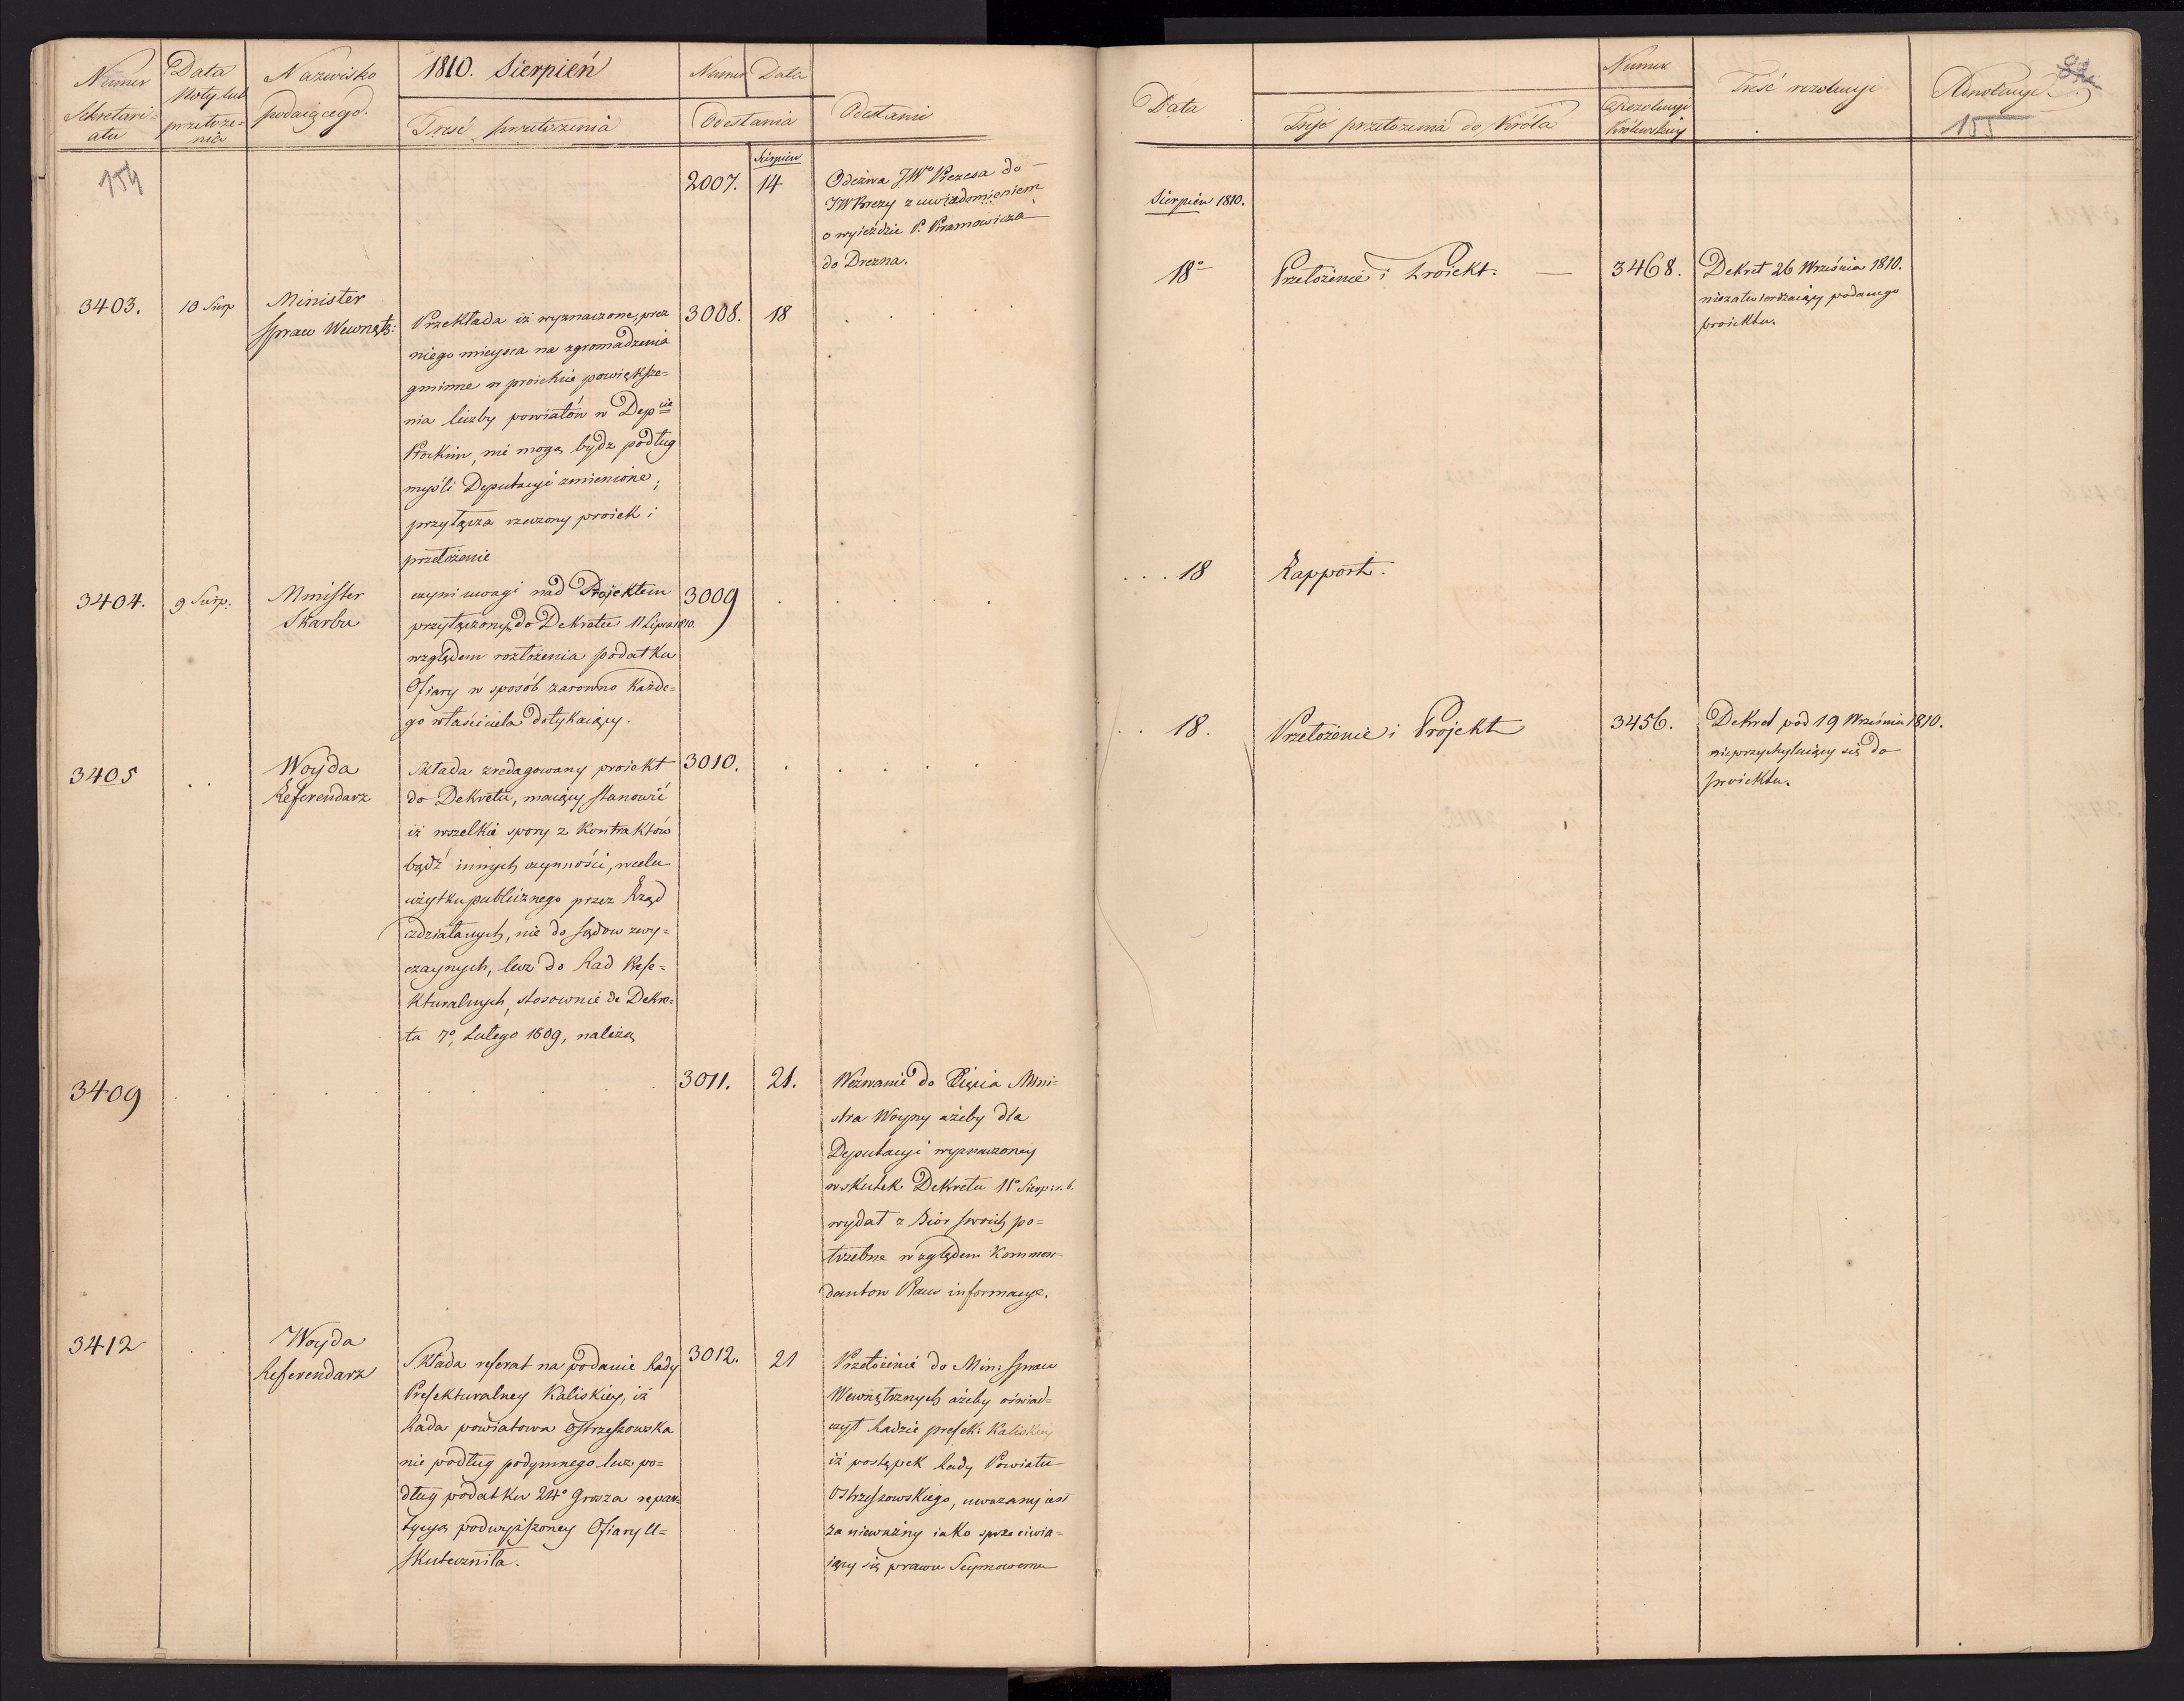 Numer
Sekretari=
atu
Data
Noty lub
przełoże=
nia
Nazwisko
podaiącego.
1810. Sierpień
Treść przełożenia
Numer Data
Odesłania
Odesłanie
154
Sierpien
2007. 14
Odezwa JWo Prezesa do
JW Brezy z uwiadomieniem
o wyieździe P. Kramowicza
do Drezna.
3403. 10 Sierp
Minister
Spraw Wewnętz:
Przekłada iż wyznaczone przez
niego mieysca na zgromadzenia
gminne w proiekcie powiększe=
nia liczby powiatów w Depcie
Płockim, nie mogą bydz podług
myśli Deputacyi zmienione;
przyłącza rzeczony proiek i
przełożenie
3008. 18
3404. 9 Sierp:
Minister
Skarbu
czyni uwagi nad Projektem
przyłączonym do Dekretu 11 Lipca 1810.
względem rozłożenia podatku
Ofiary w sposób zarowno każde=
go właściciela dotykaiący.
3009
3405
Woyda
Referendarz
Składa zredagowany proiekt
do Dekretu, maiący stanowić
iż wszelkie spory z Kontraktów
bądź innych czynności, w celu
użytku publicznego przez Rząd
zdziałanych, nie do sądow zwy=
czaynych, lecz do Rad Prefe=
kturalnych, stosownie do Dekre=
tu 7o Lutego 1809, należą
3010.
3409
3011. 21.
Wezwanie do Xięcia Mini=
stra Woyny ażeby dla
Deputacyi wyznaczoney
w skutek Dekretu 11o Sierp: r. b.
wydał z Biór swoich po=
trzebne względem Kommen=
dantow Placu informacye.
3412
Woyda
Referendarz
Składa referat na podanie Rady
Prefekturalney Kaliskiey, iż
Rada powiatowa Ostrzeszowska
nie podług podymnego lecz po=
dług podatku 24o Grosza repar=
tycyą podwyższoney Ofiary U=
skuteczniła.
3012. 21
Przełożenie do Min: Spraw
Wewnętrznych ażeby oświad=
czył Radzie prefek: Kaliskiey
iż postępek Rady Powiatu
Ostrzeszowskiego, uważany iest
za nieważny iako sprzeciwia=
iący się prawu Seymowemu
Data
Treść przełożenia do Króla
Numer
Rezolucyi
Królewskiey
Treść rezolucyi
Adnotacye
82
155
Sierpień 1810.
18o Przełożenie i Proiekt. — 3468.
Dekret 26 Września 1810.
niezatwierdzaiący podanego
proiektu.
18 Rapport.
18. Przełożenie i Projekt 3456.
Dekret pod 19 Września 1810.
nieprzychylaiący się do
proiektu.